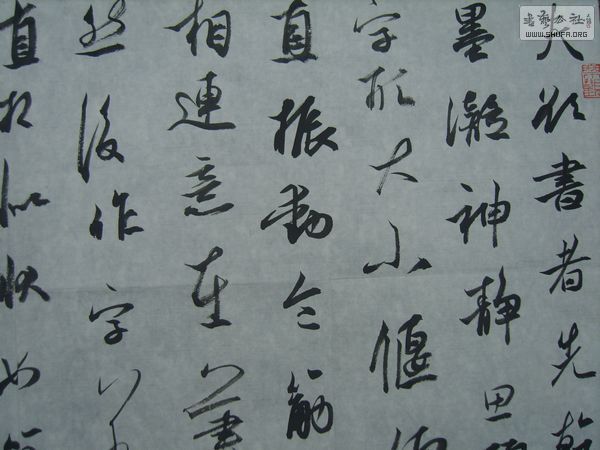 夫欲書者先乾
墨凝神靜思
字形大小偃
直振動令筋
相連意在筆
然後作字
直相似狀如
書藝公社
WWW.SHUFA.ORG